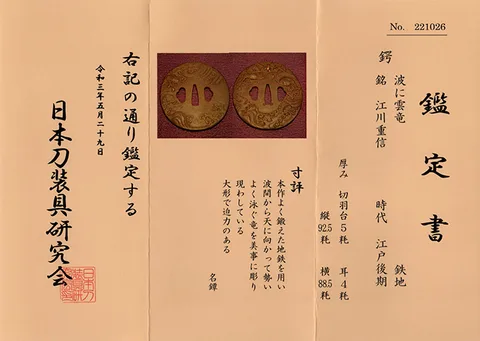 No. 221026
鑑定書
鍔
波に雲竜
鉄地
銘 江川重信
時代 江戸後期
厚み 切羽台5粍 耳4粍
縦92.5粍 横88.5粍
寸評
本作よく鍛えた地鉄を用い
波間から天に向かって勢い
よく泳ぐ竜を美事に彫り
現わしている
大形で迫力のある
名鐔
右記の通り鑑定する
令和三年五月二十九日
日本刀装具研究会